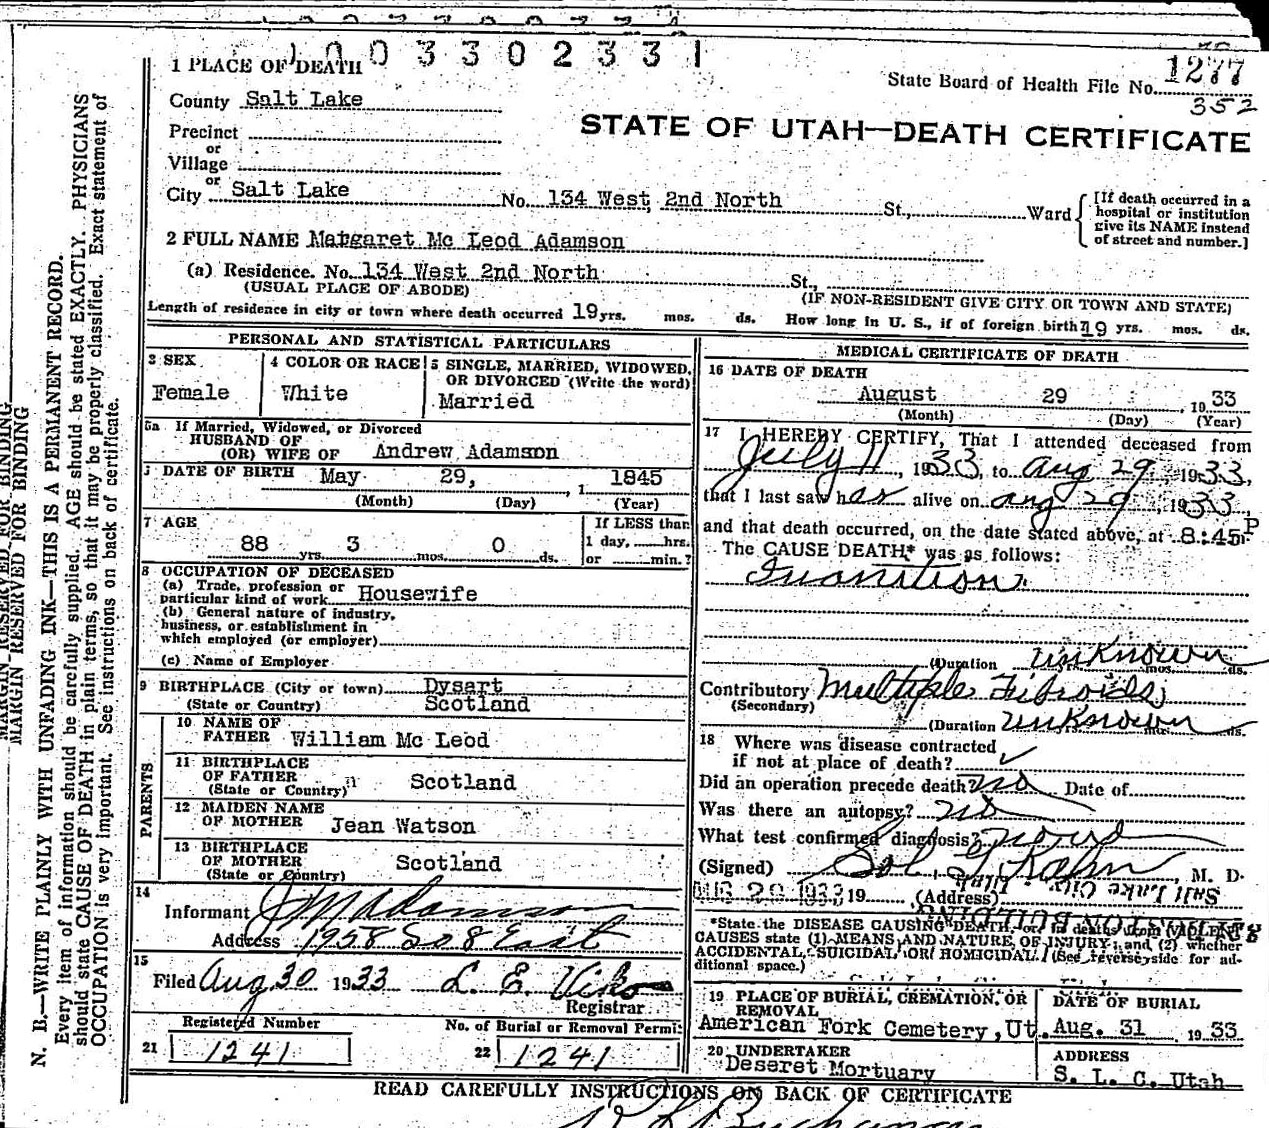 1003302331
1277
State Board of Health File No.
352
STATE OF UTAH—DEATH CERTIFICATE
1 PLACE OF DEATH
County Salt Lake
Precinct
or
Village
or
City Salt Lake No. 134 West 2nd North St., Ward
[If death occurred in a
hospital or institution
give its NAME instead
of street and number.]
2 FULL NAME Margaret Mc Leod Adamson
(a) Residence. No. 134 West 2nd North St.,
(USUAL PLACE OF ABODE) (IF NON-RESIDENT GIVE CITY OR TOWN AND STATE)
Length of residence in city or town where death occurred 19 yrs. mos. ds. How long in U. S., if of foreign birth? 19 yrs. mos. ds.
PERSONAL AND STATISTICAL PARTICULARS
3 SEX
Female
4 COLOR OR RACE
White
5 SINGLE, MARRIED, WIDOWED,
OR DIVORCED (Write the word)
Married
5a If Married, Widowed, or Divorced
HUSBAND OF
(OR) WIFE OF Andrew Adamson
DATE OF BIRTH May 29, , 1 1845
(Month) (Day) (Year)
7 AGE
88 yrs. 3 mos. 0 ds.
If LESS than
1 day, hrs.
or min.?
8 OCCUPATION OF DECEASED
(a) Trade, profession or
particular kind of work Housewife
(b) General nature of industry,
business, or establishment in
which employed (or employer)
(c) Name of Employer
9 BIRTHPLACE (City or town) Dysart
(State or Country) Scotland
PARENTS
10 NAME OF
FATHER William Mc Leod
11 BIRTHPLACE
OF FATHER
(State or Country) Scotland
12 MAIDEN NAME
OF MOTHER Jean Watson
13 BIRTHPLACE
OF MOTHER
(State or Country) Scotland
14
Informant J M Adamson
Address 1958 So 8 East
15
Filed Aug 30 1933 L. E. Viko
Registrar
Registered Number
21 1241
No. of Burial or Removal Permit
22 1241
MEDICAL CERTIFICATE OF DEATH
16 DATE OF DEATH
August 29 , 19 33
(Month) (Day) (Year)
17 I HEREBY CERTIFY, That I attended deceased from
July 11, 1933, to Aug 29 1933,
that I last saw her alive on Aug 29, 1933,
and that death occurred, on the date stated above, at 8:45 P
The CAUSE DEATH* was as follows:
Inanition
(Duration unknown mos. ds.
Contributory Multiple Fibroids,
(Secondary)
(Duration unknown mos. ds.
18 Where was disease contracted
if not at place of death?
Did an operation precede death? no Date of
Was there an autopsy? no
What test confirmed diagnosis?
(Signed) Sol G Kahn, M. D.
AUG 29 1933 19 (Address) Salt Lake City, Utah
*State the DISEASE CAUSING DEATH, or in deaths from VIOLENT
CAUSES state (1) MEANS AND NATURE OF INJURY; and (2) whether
ACCIDENTAL, SUICIDAL OR HOMICIDAL. (See reverse side for ad-
ditional space.)
19 PLACE OF BURIAL, CREMATION, OR
REMOVAL
American Fork Cemetery, Ut.
DATE OF BURIAL
Aug. 31 19 33
20 UNDERTAKER
Deseret Mortuary
ADDRESS
S. L. C. Utah
READ CAREFULLY INSTRUCTIONS ON BACK OF CERTIFICATE
MARGIN RESERVED FOR BINDING
MARGIN RESERVED FOR BINDING
N. B.—WRITE PLAINLY WITH UNFADING INK—THIS IS A PERMANENT RECORD.
Every item of information should be carefully supplied. AGE should be stated EXACTLY. PHYSICIANS
should state CAUSE OF DEATH in plain terms, so that it may be properly classified. Exact statement of
OCCUPATION is very important. See instructions on back of certificate.